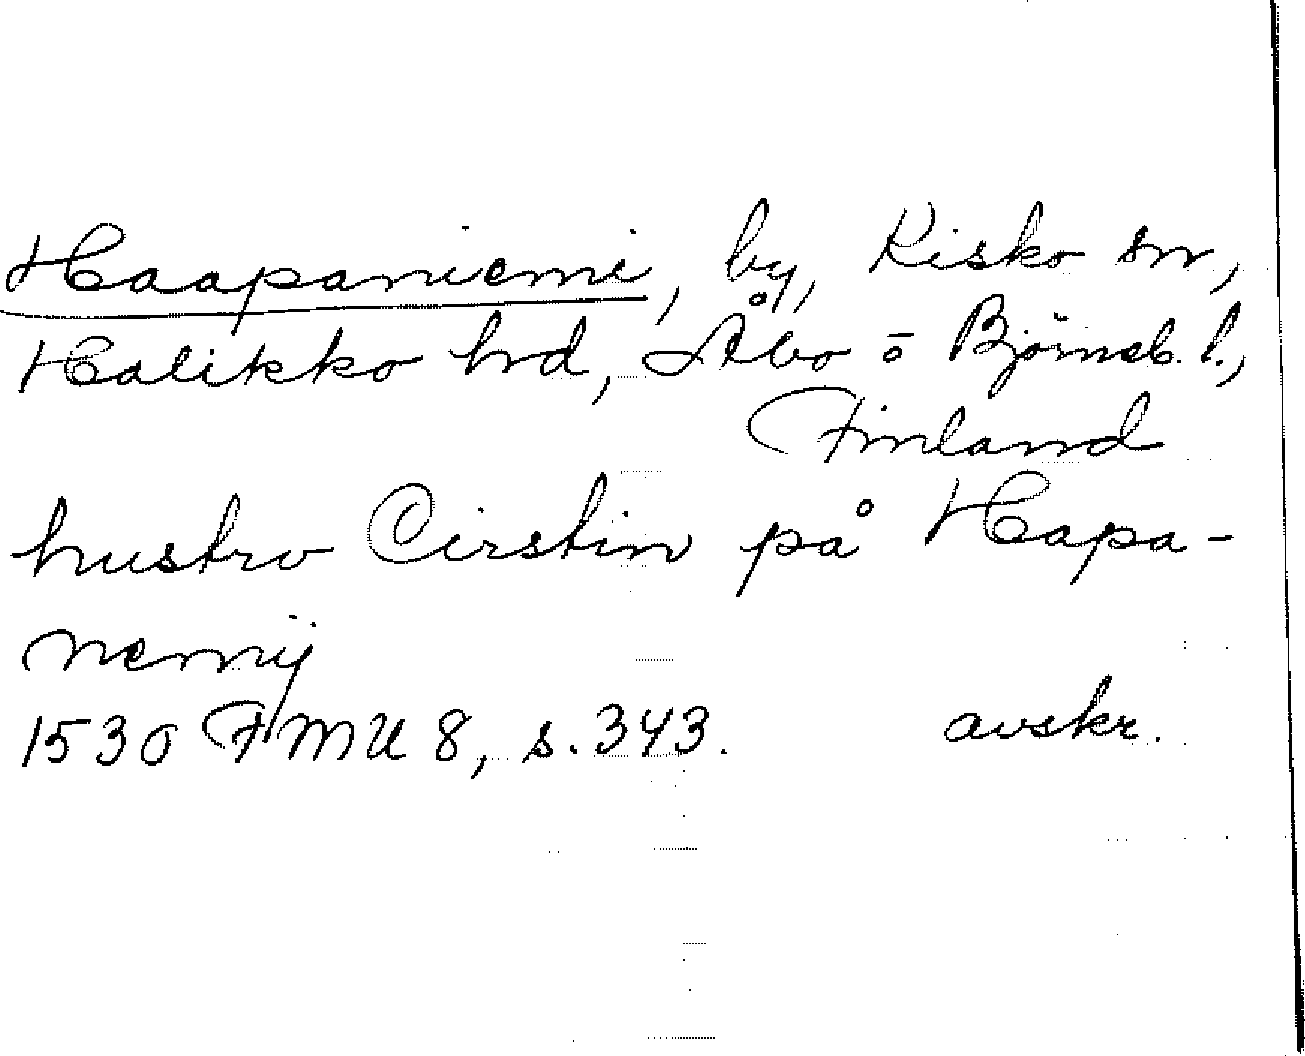 Haapaniemi, by, Kisko sn,
Halikko hd, Åbo o Björneb. l.,
Finland
hustro Cirstin på Hapa-
nemij
1530 FMU 8, s. 343. avskr.